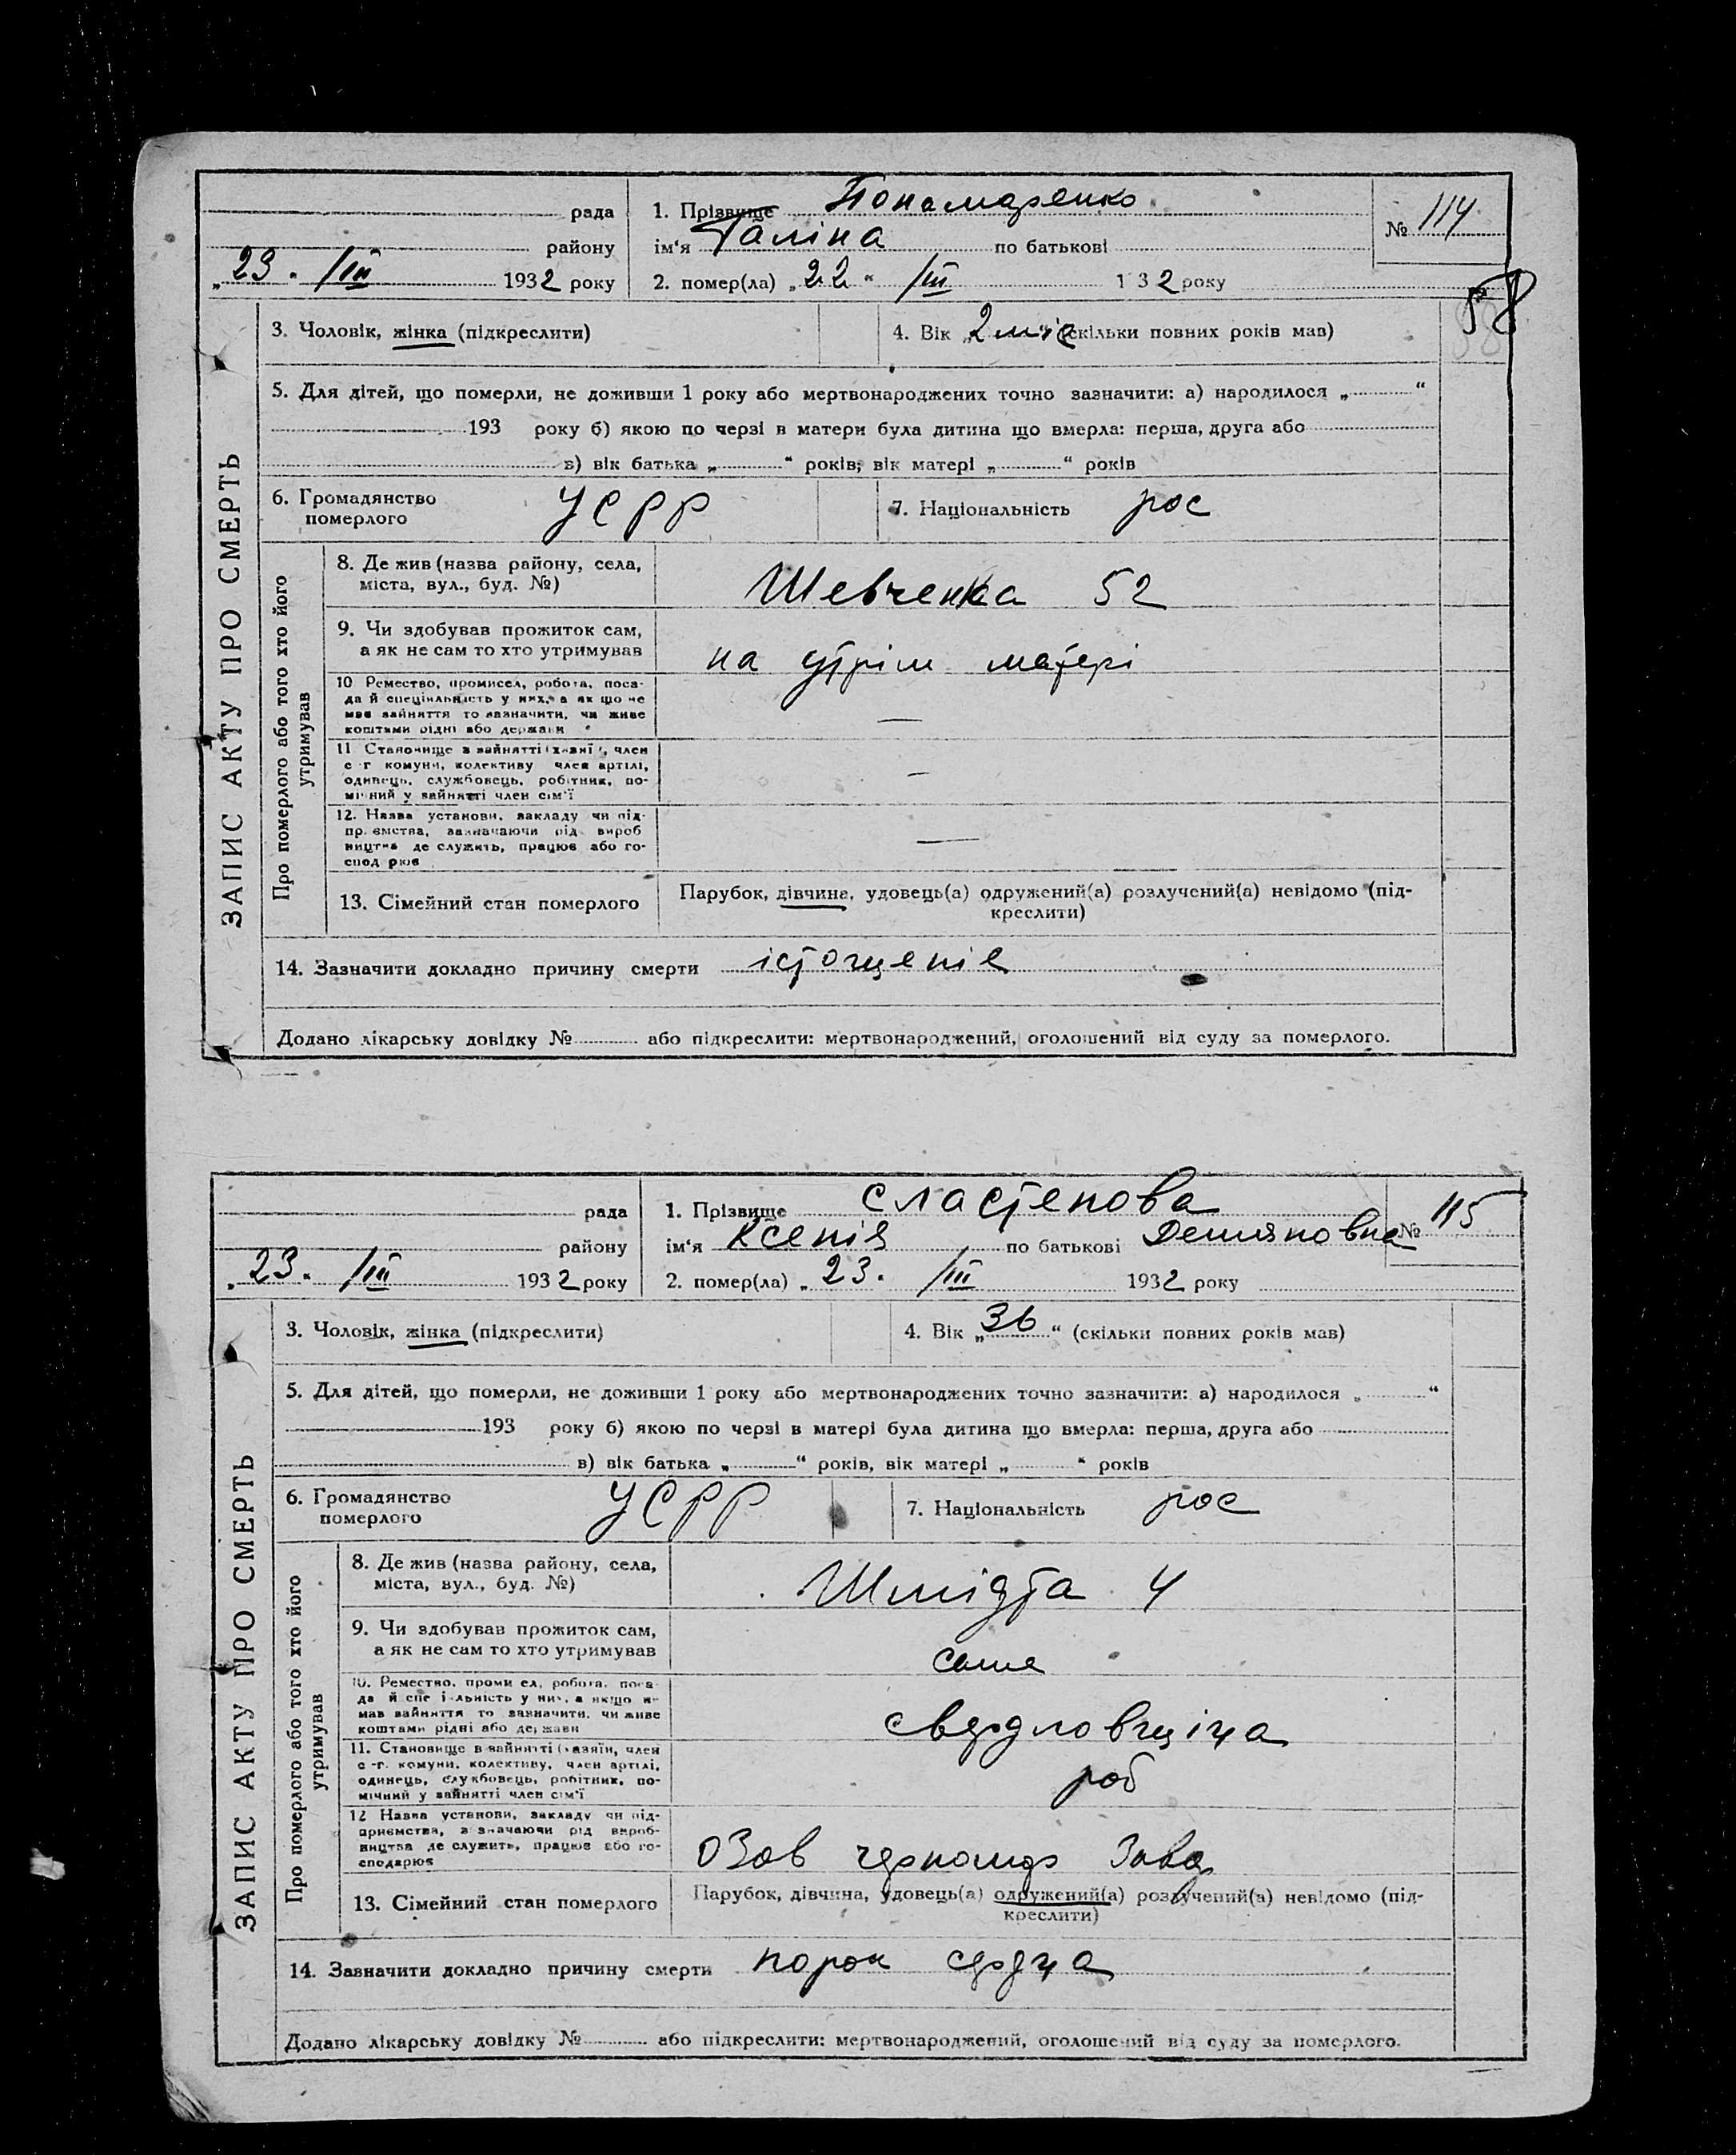 рада 1. Прізвище Понамаренко № 114
району ім'я Галіна по батькові
„23. /III 1932 року 2. помер(ла) „22“ /III 1 32 року
58
3. Чоловік, жінка (підкреслити) 4. Вік „2 міс (скільки повних років мав)
5. Для дітей, що померли, не доживши 1 року або мертвонароджених точно зазначити: а) народилося „ “
193 року б) якою по черзі в матери була дитина що вмерла: перша, друга або
в) вік батька „ “ років; вік матері „ “ років
6. Громадянство померлого УСРР 7. Національність рос
ЗАПИС АКТУ ПРО СМЕРТЬ
Про померлого або того хто його утримував
8. Де жив (назва району, села, міста, вул., буд. №) Шевченка 52
9. Чи здобував прожиток сам, а як не сам то хто утримував на утрім матері
10 Ремество, промисел, робота, поса-
да й спеціяльність у них, а як що не
має зайняття то зазначити, чи живе
коштами рідні або держави —
11 Становище в зайнятті (хазяї, член
с г комуни, колективу член артілі,
одинець, службовець, робітник, по-
мічний у зайнятті член сім'ї —
12. Назва установи, закладу чи під-
приємства, зазначаючи рід вироб
ництва де служить, працює або го-
сподарює —
13. Сімейний стан померлого Парубок, дівчина, удовець(а) одружений(а) розлучений(а) невідомо (під-
креслити)
14. Зазначити докладно причину смерти істощеніе
Додано лікарську довідку № або підкреслити: мертвонароджений, оголошений від суду за померлого.
рада 1. Прізвище Сластенова № 115
району ім'я Ксенія по батькові Демяновна
„23. /III 1932 року 2. помер(ла) „23. /III 1932 року
3. Чоловік, жінка (підкреслити) 4. Вік „36“ (скільки повних років мав)
5. Для дітей, що померли, не доживши 1 року або мертвонароджених точно зазначити: а) народилося „ “
193 року б) якою по черзі в матері була дитина що вмерла: перша, друга або
в) вік батька „ “ років, вік матері „ “ років
6. Громадянство померлого УСРР 7. Національність рос
ЗАПИС АКТУ ПРО СМЕРТЬ
Про померлого або того хто його утримував
8. Де жив (назва району, села, міста, вул., буд. №) Шмідта 4
9. Чи здобував прожиток сам, а як не сам то хто утримував сама
10. Ремество, промисел, робота, поса-
да й спеціяльність у них, а якщо не
мав зайняття то зазначити, чи живе
коштами рідні або держави свердловщіца
11. Становище в зайнятті (хазяїн, член
с-г. комуни, колективу, член артілі,
одинець, службовець, робітник, по-
мічний у зайнятті член сім'ї роб
12 Назва установи, закладу чи під-
приємства, зазначаючи рід вироб-
ництва де служить, працює або го-
сподарює ОЗов черномор Завод
13. Сімейний стан померлого Парубок, дівчина, удовець(а) одружений(а) розлучений(а) невідомо (під-
креслити)
14. Зазначити докладно причину смерти порок сердца
Додано лікарську довідку № або підкреслити: мертвонароджений, оголошений від суду за померлого.